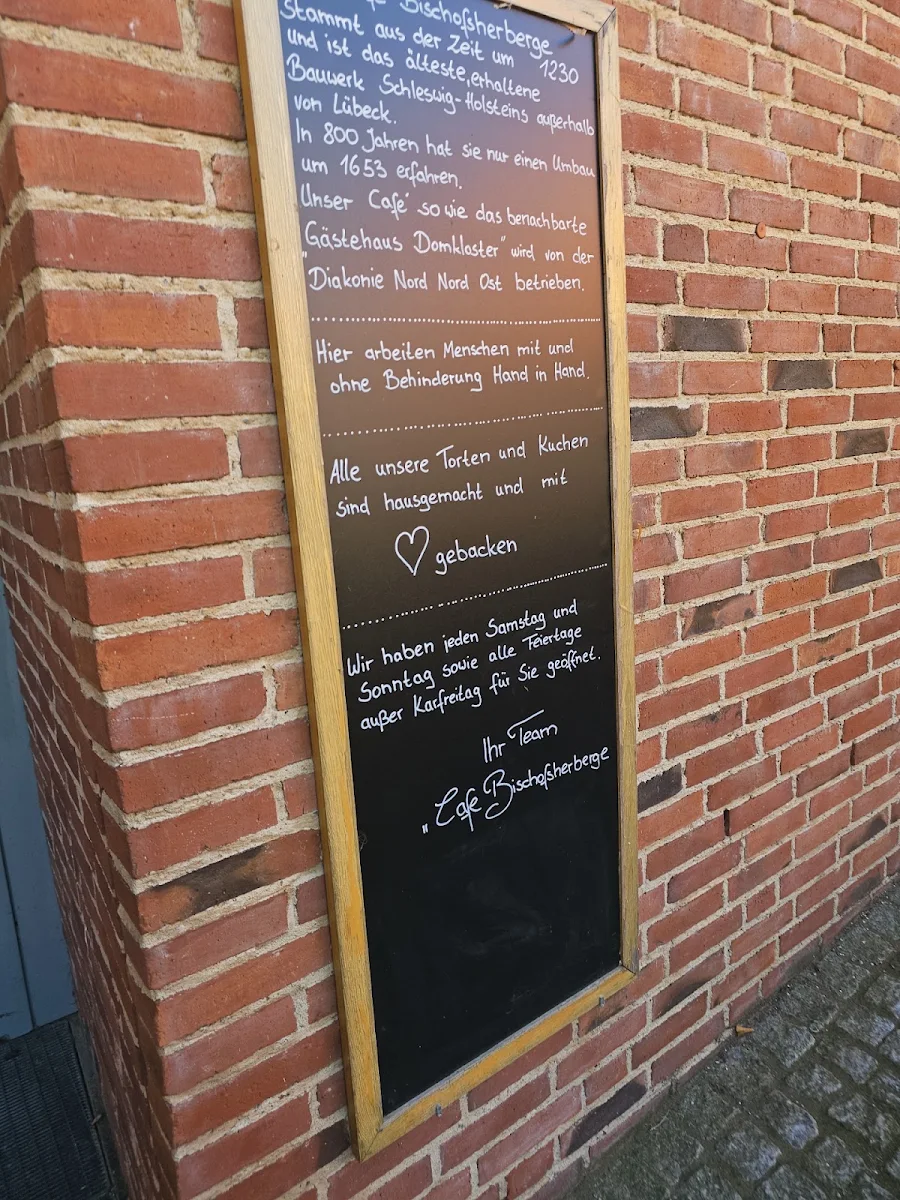 Bischofsherberge
stammt aus der Zeit um 1230
und ist das älteste, erhaltene
Bauwerk Schleswig-Holsteins außerhalb
von Lübeck.
In 800 Jahren hat sie nur einen Umbau
um 1653 erfahren.
Unser Café sowie das benachbarte
Gästehaus Domkloster" wird von der
"Diakonie Nord Nord Ost betrieben.
Hier arbeiten Menschen mit und
ohne Behinderung Hand in Hand.
Alle unsere Torten und Kuchen
sind hausgemacht und mit
♡ gebacken
Wir haben jeden Samstag und
Sonntag sowie alle Feiertage
außer Karfreitag für Sie geöffnet.
Ihr Team
„Cafe Bischofsherberge